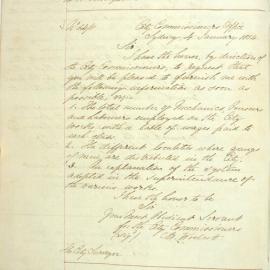 City Commissioners Office
Sydney 4 January 1854
Sir,
I have the honor, by direction of
the City Commissioners, to request that
you will be pleased to furnish me with
the following information as soon as
possible, viz
1. The total number of Mechanics
and Labourers employed on the City
Works, with a table of wages paid to
each class.
2. The different localities where gangs
of men are distributed in the City.
3. An explanation of the System
adopted in the Superintendence of
the various works.
I have the honor to be
Sir
Your Most Obedient Servant
for the City Commissioners
The City Surveyor